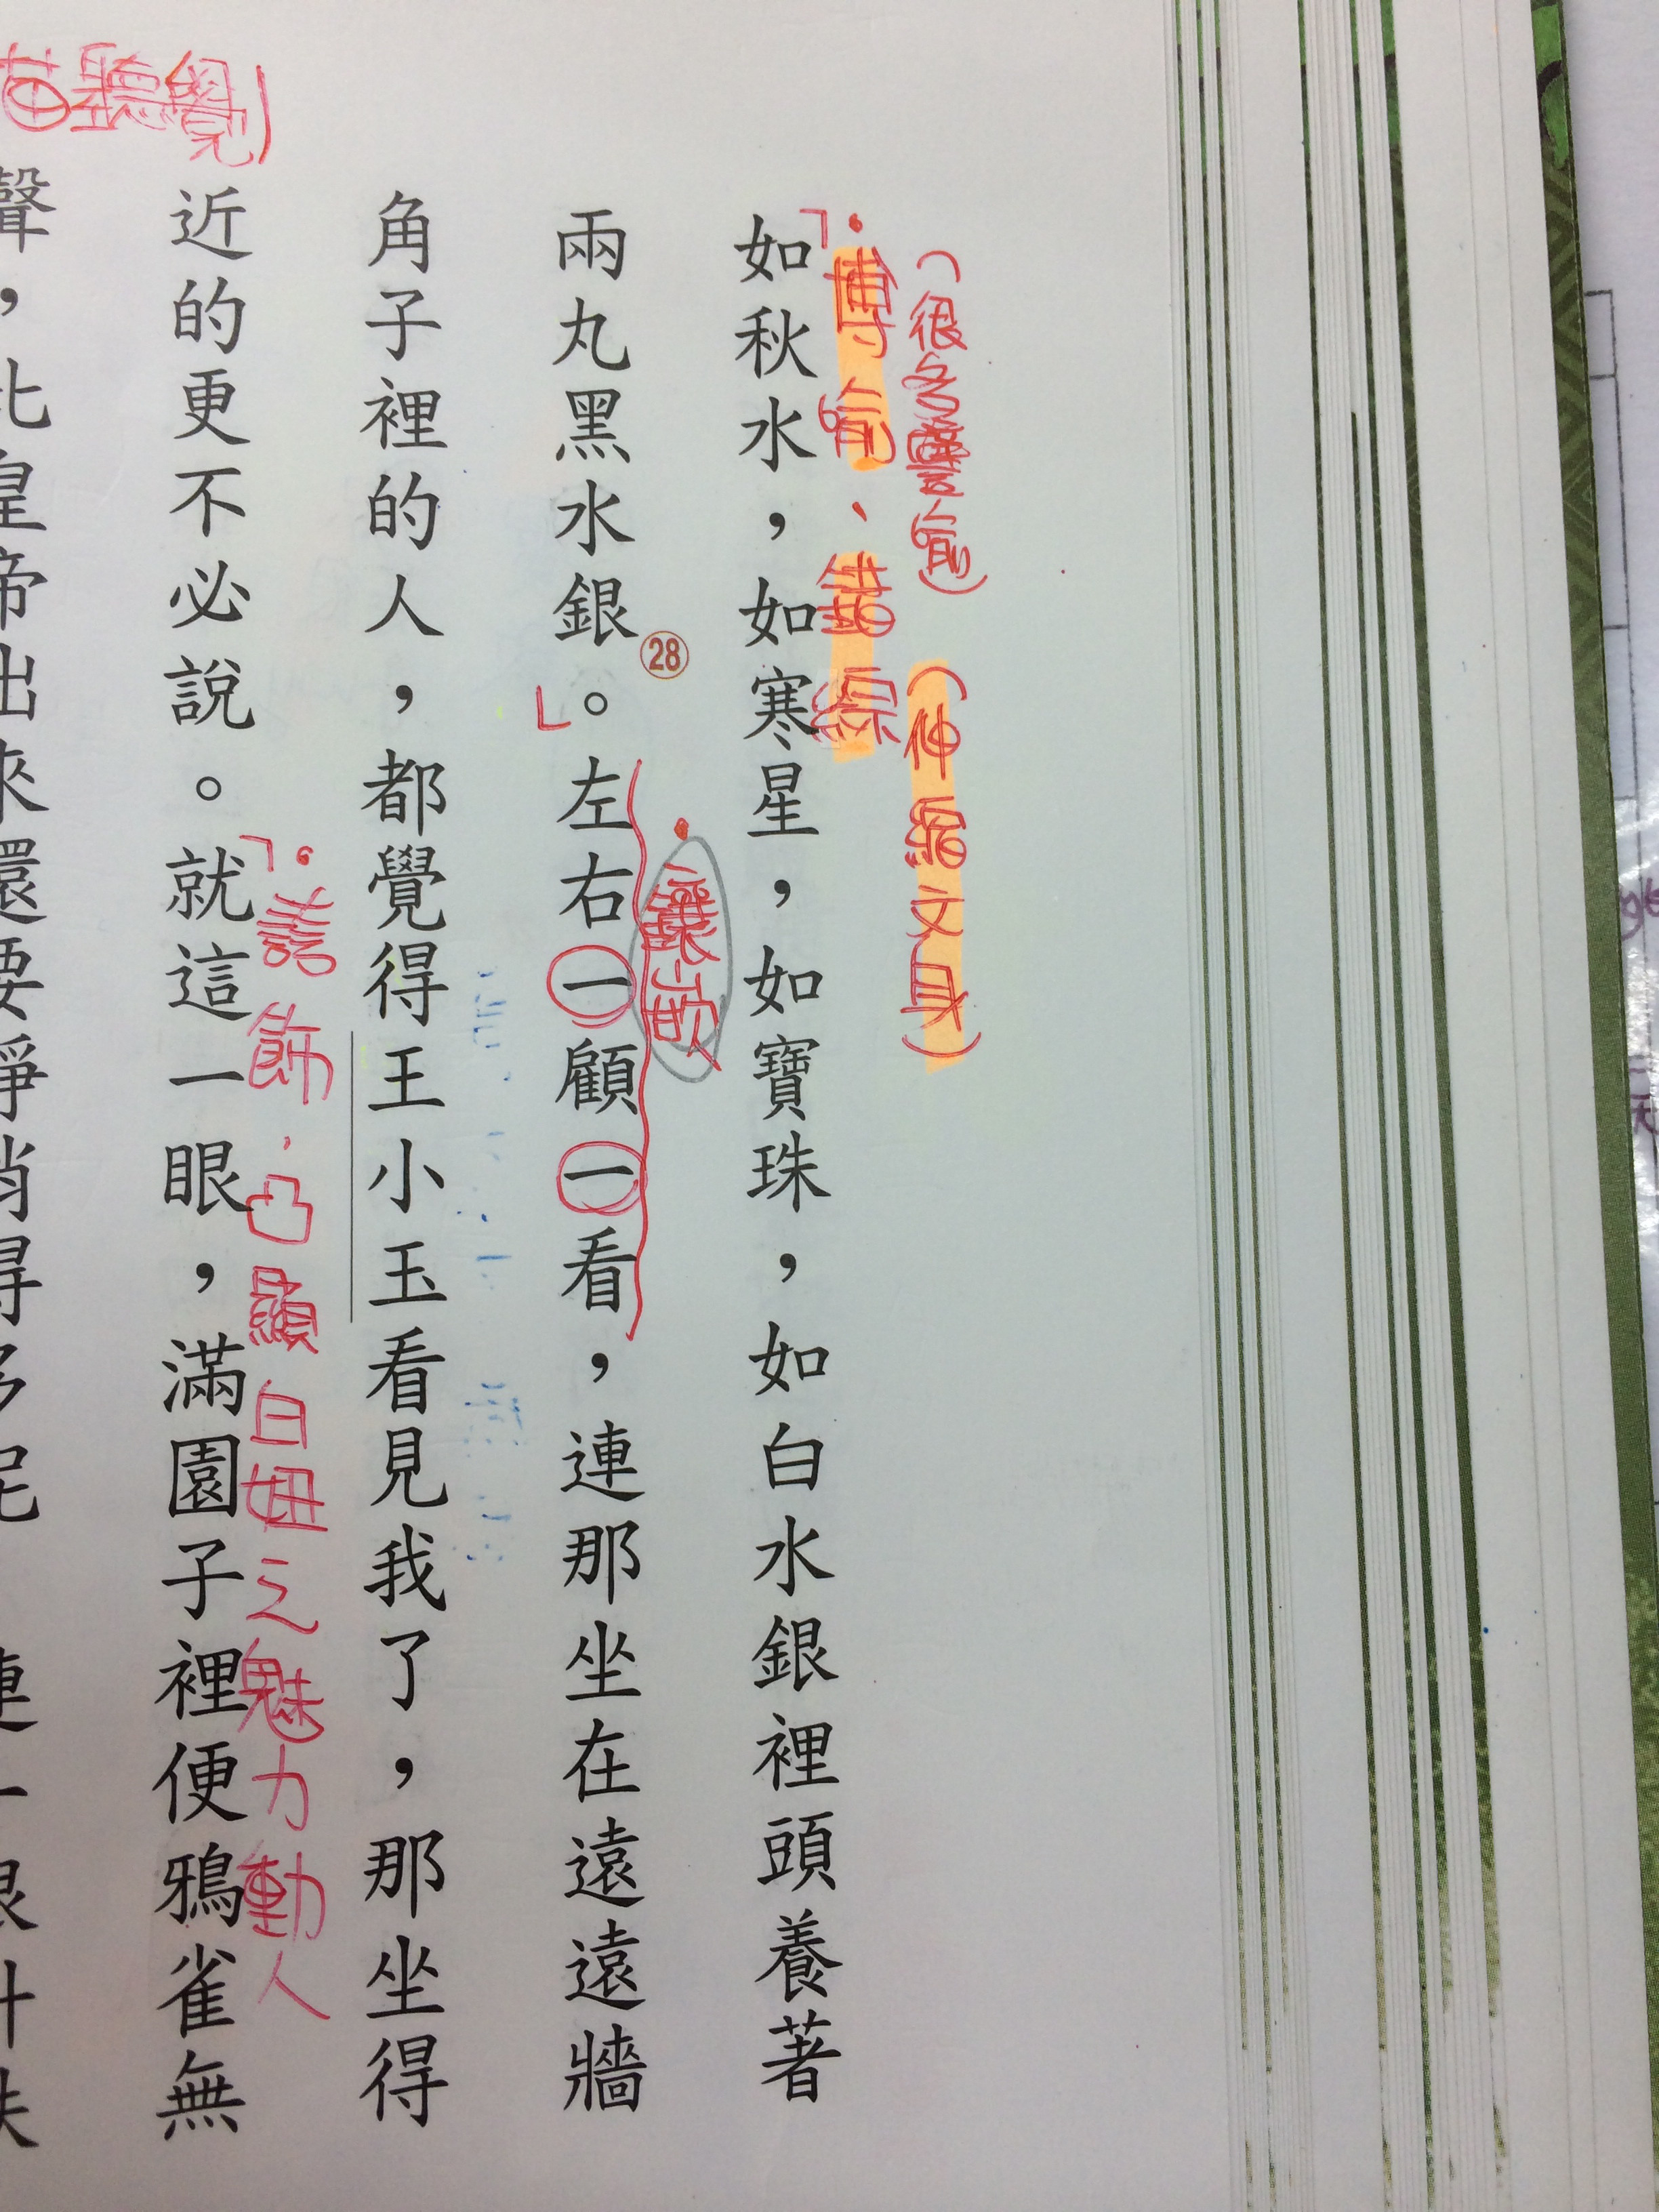 （很多譬喻）
（伸縮文身）
博喻、錯綜
如秋水，如寒星，如寶珠，如白水銀裡頭養著
㉘
鑲嵌
兩丸黑水銀。左右一顧一看，連那坐在遠遠牆
角子裡的人，都覺得王小玉看見我了，那坐得
誇飾，凸顯白妞之魅力動人
聽覺）
近的更不必說。就這一眼，滿園子裡便鴉雀無
聲，比皇帝出來還要靜悄得多呢